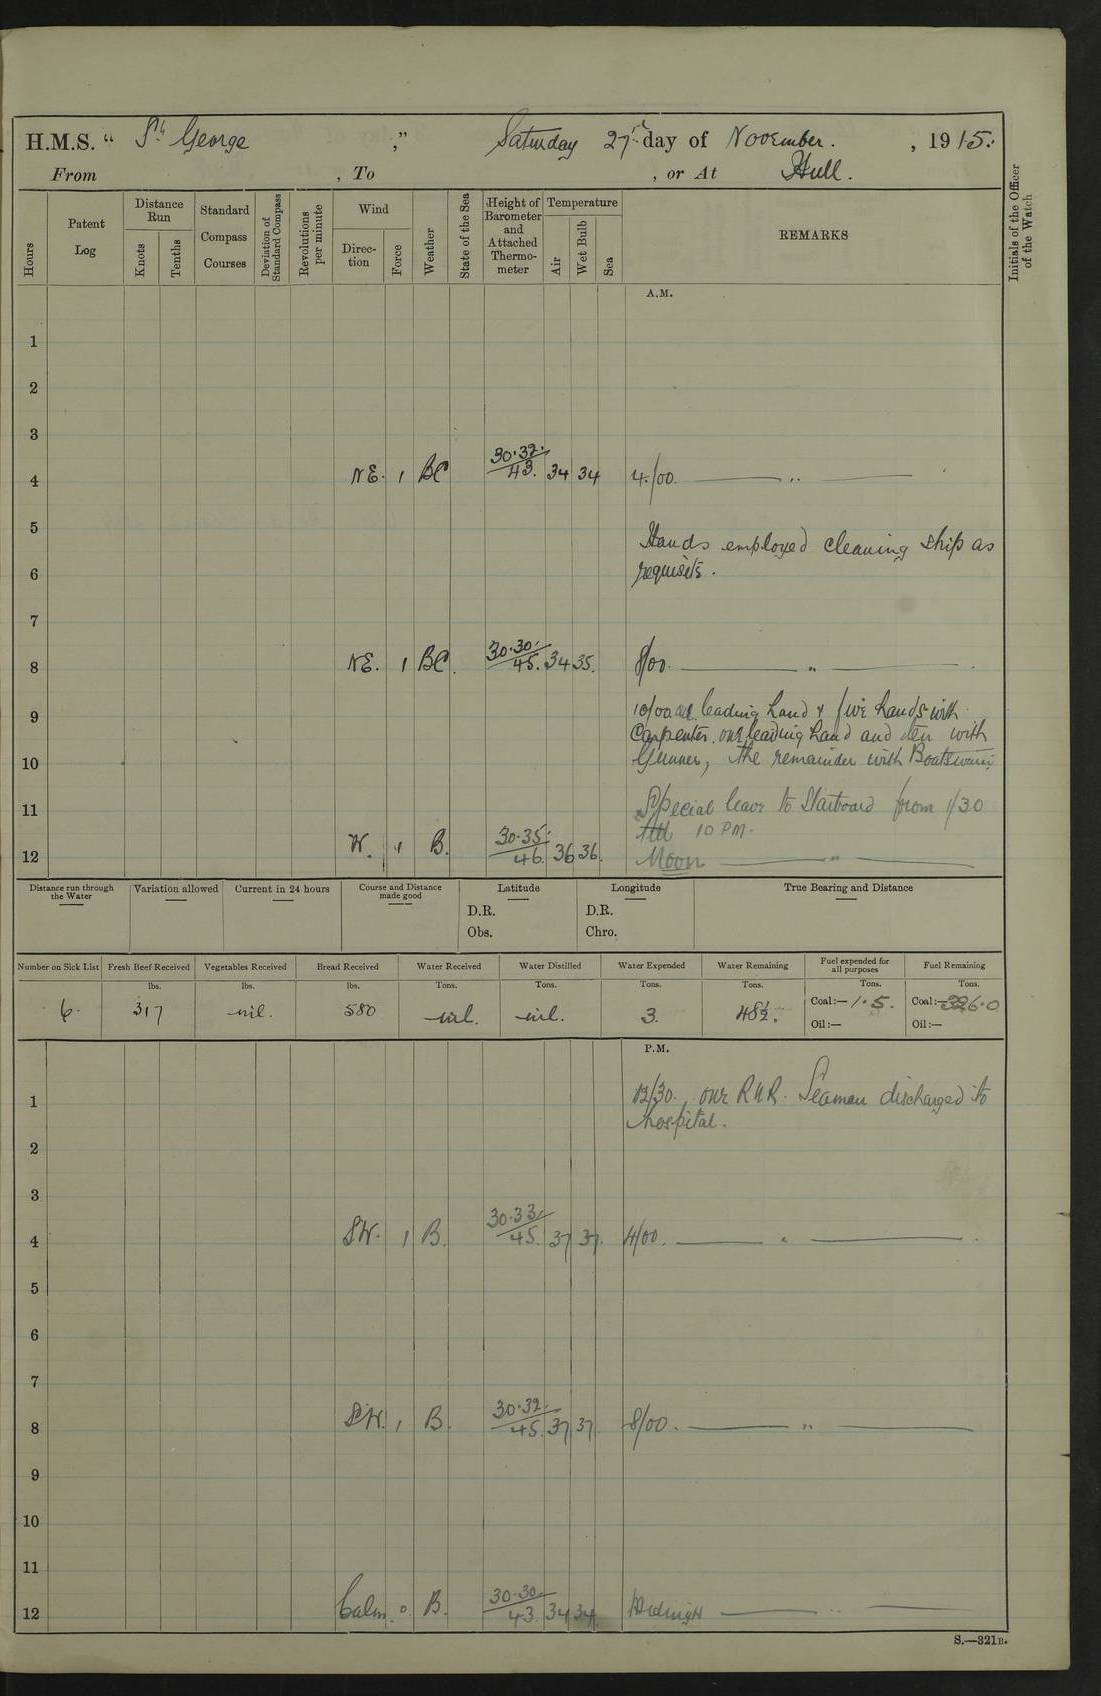 H.M.S. “ St George ,” Saturday 27th day of November. , 1915.
From , To , or At Hull.
Hours
Patent Log
Distance Run
Knots
Tenths
Standard Compass Courses
Deviation of Standard Compass
Revolutions per minute
Wind
Direc-tion
Force
Weather
State of the Sea
Height of Barometer and Attached Thermo-meter
Temperature
Air
Wet Bulb
Sea
REMARKS
Initials of the Officer of the Watch
A.M.
1
2
3
4 NE. 1 BC 30.32. 43. 34 34 4/00 ——— " ———
5
Hands employed cleaning ship as
6 requisite.
7
8 NE. 1 BC. 30.30. 45. 34 35. 8/00. ——— " ———
9 10/00 leading hand & five hands with
Carpenter. one leading hand and ten with
10 Gunner, the remainder with Boatswain
11 Special leave to Starboard from 1/30
till 10 PM.
12 W. 1 B. 30.35. 46. 36 36. Noon ——— " ———
Distance run through the Water
Variation allowed
Current in 24 hours
Course and Distance made good
Latitude
D.R.
Obs.
Longitude
D.R.
Chro.
True Bearing and Distance
Number on Sick List
Fresh Beef Received
Vegetables Received
Bread Received
Water Received
Water Distilled
Water Expended
Water Remaining
Fuel expended for all purposes
Fuel Remaining
lbs. lbs. lbs. Tons. Tons. Tons. Tons. Tons. Tons.
6. 317 nil. 580 nil. nil. 3. 48½. Coal:— 1.5. Coal:—
Oil:— Oil:—
P.M.
1 12/30. one RNR. Seaman discharged to
hospital.
2
3
4 SW. 1 B. 30.33. 45. 37 37. 4/00. ——— " ———.
5
6
7
8 SW. 1 B. 30.32. 45. 37 37. 8/00. ——— " ———
9
10
11
12 Calm. 0. B. 30.30. 43. 34 34 Midnight ——— " ———
S.—321B.